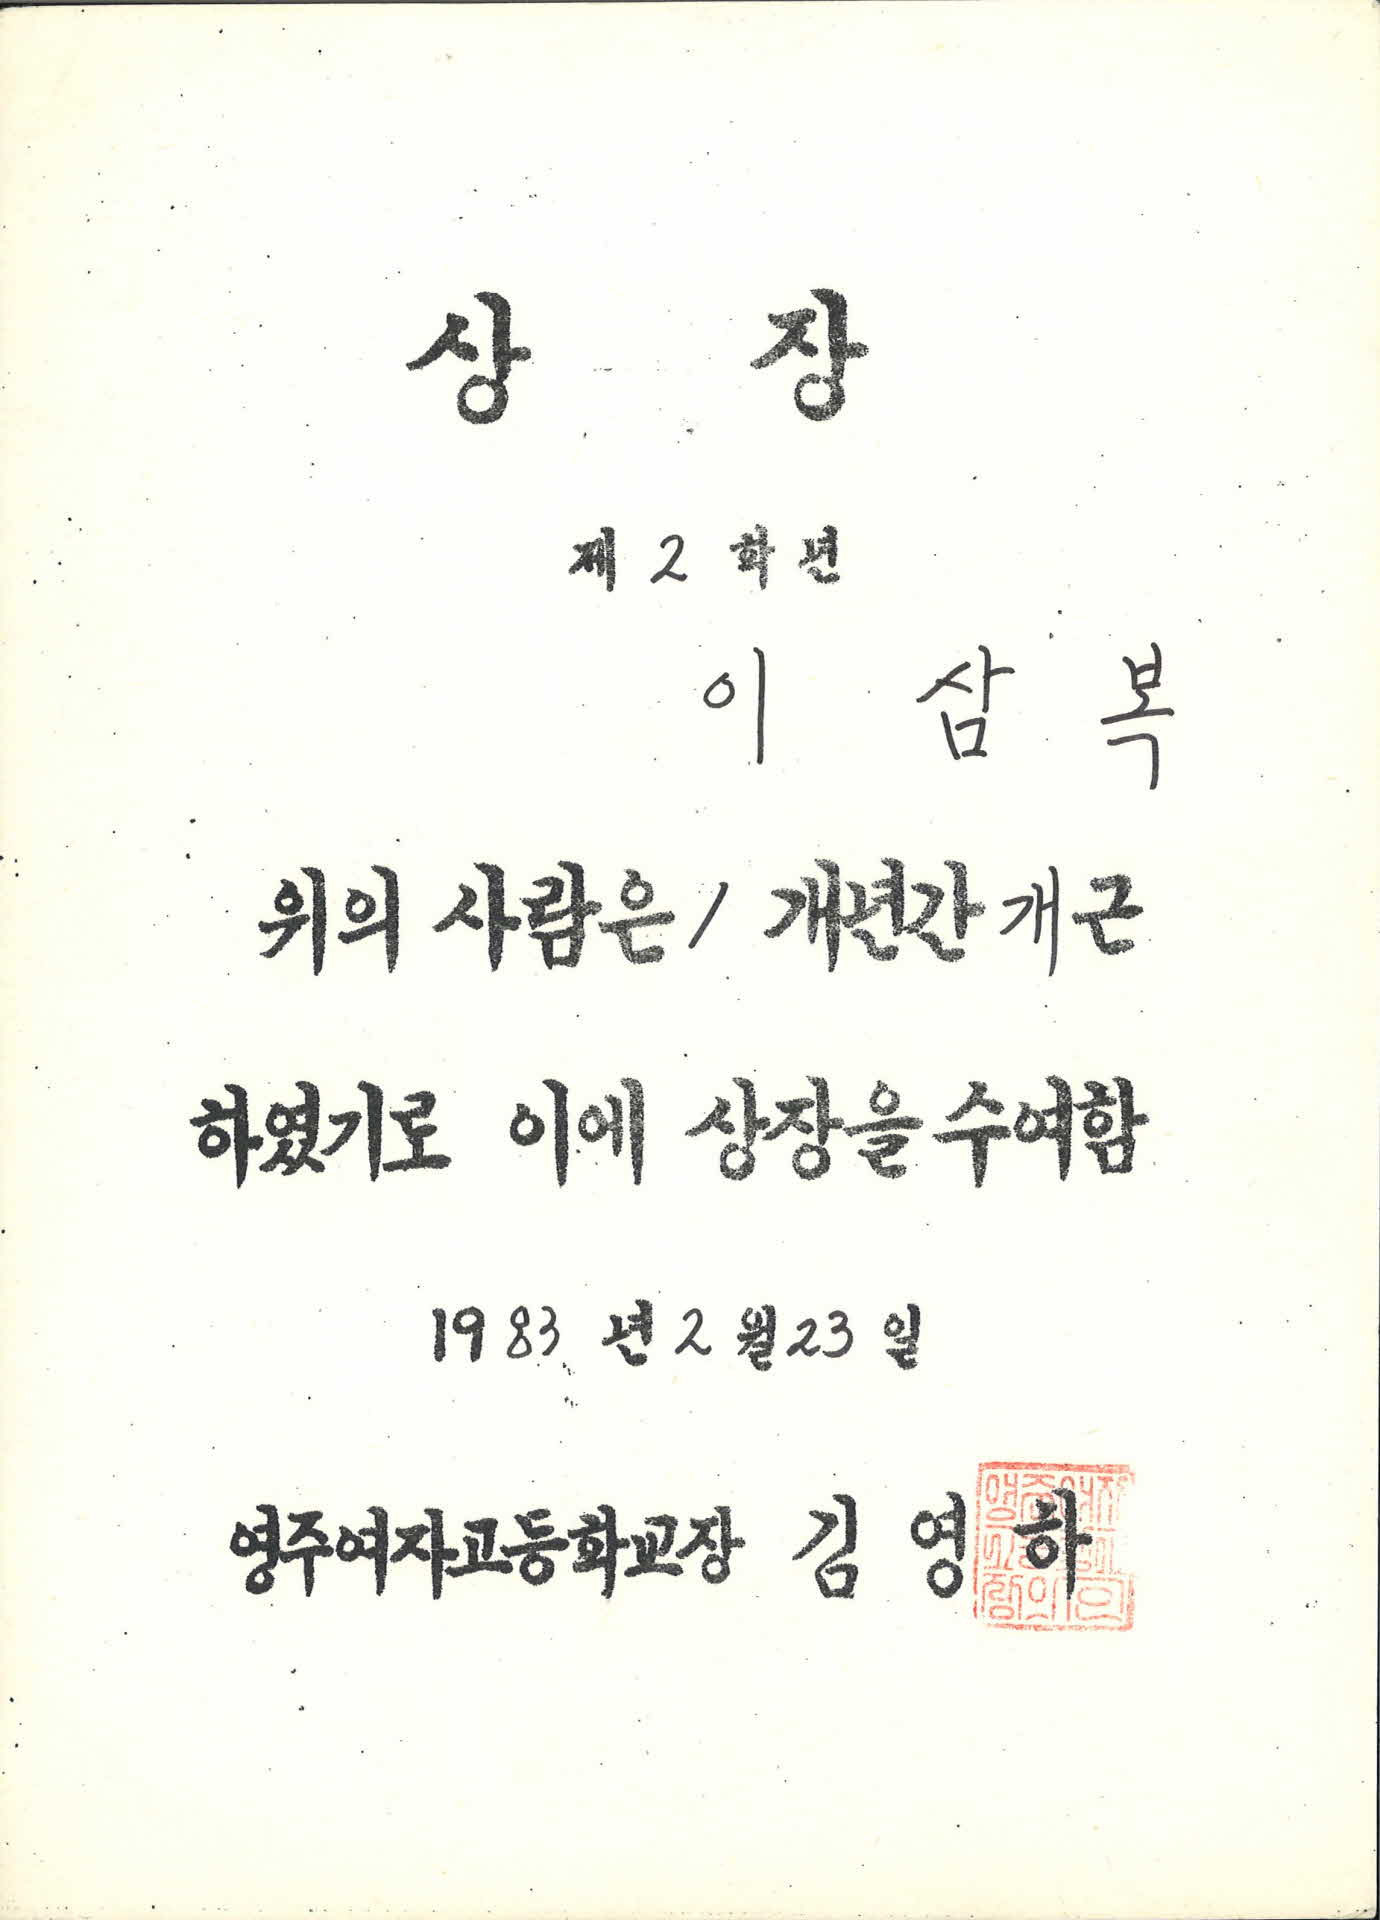 상 장
제 2 학년
이 삼 복
위의 사람은 1 개년간 개근
하였기로 이에 상장을 수여함
1983 년 2 월 23 일
영주여자고등학교장 김 영 하
영주여자
고등학교
장의인